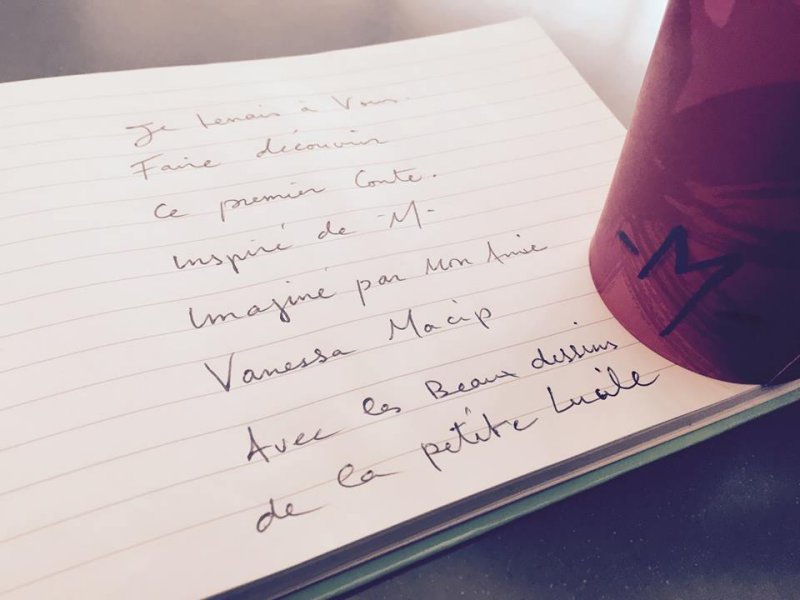 Je tenais à Vous.
Faire découvrir
Ce premier Conte.
Inspiré de -M-
Imaginé par Mon Amie
Vanessa Macip
Avec les Beaux dessins
de la petite Lucile
-M